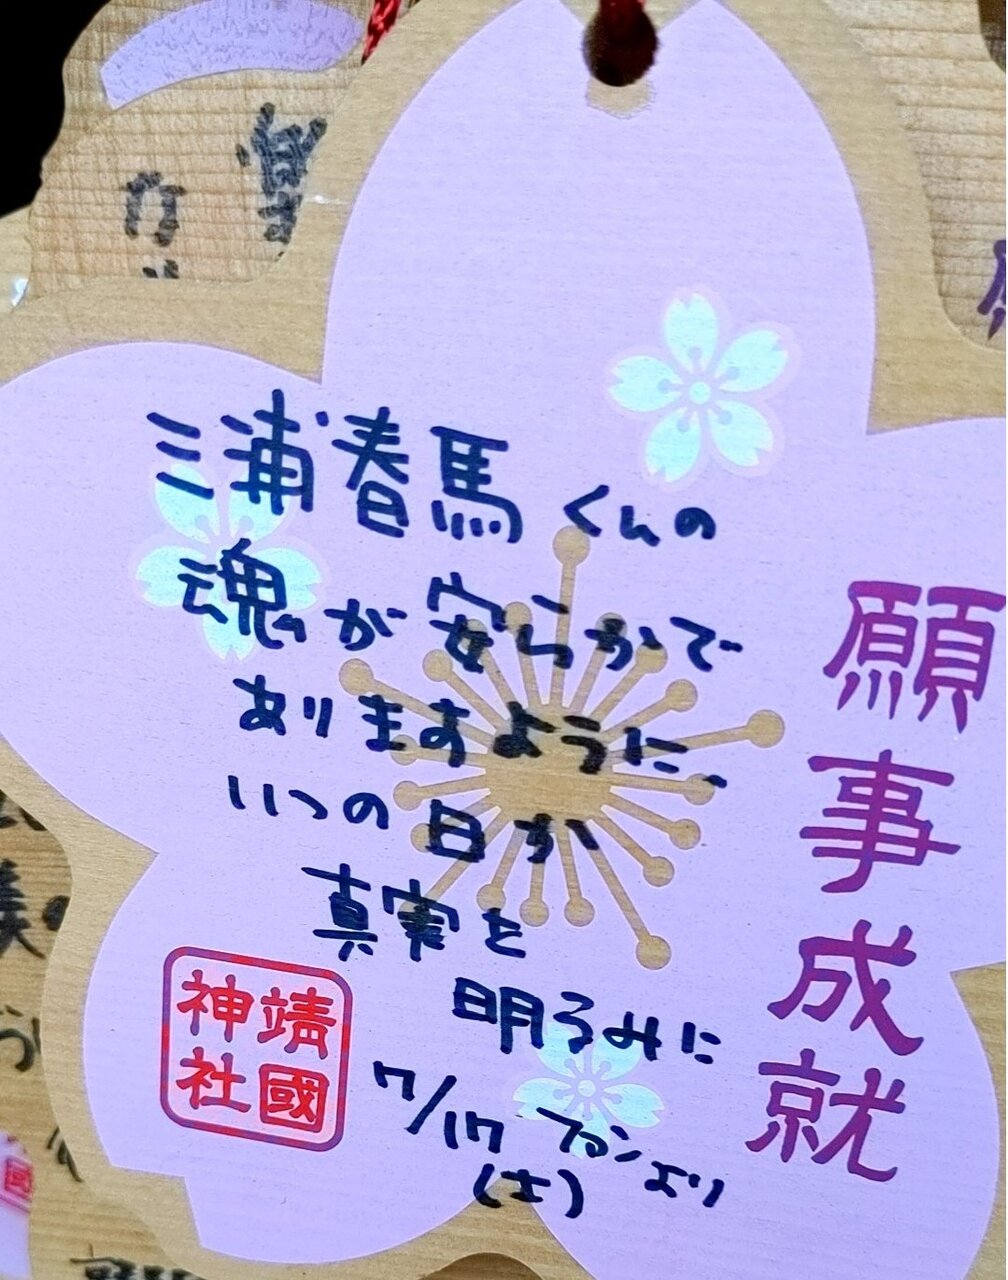 三浦春馬くんの
魂が安らかで
ありますように、
いつの日か
真実を
明るみに
7/17
(土)
より
願事成就
靖國
神社